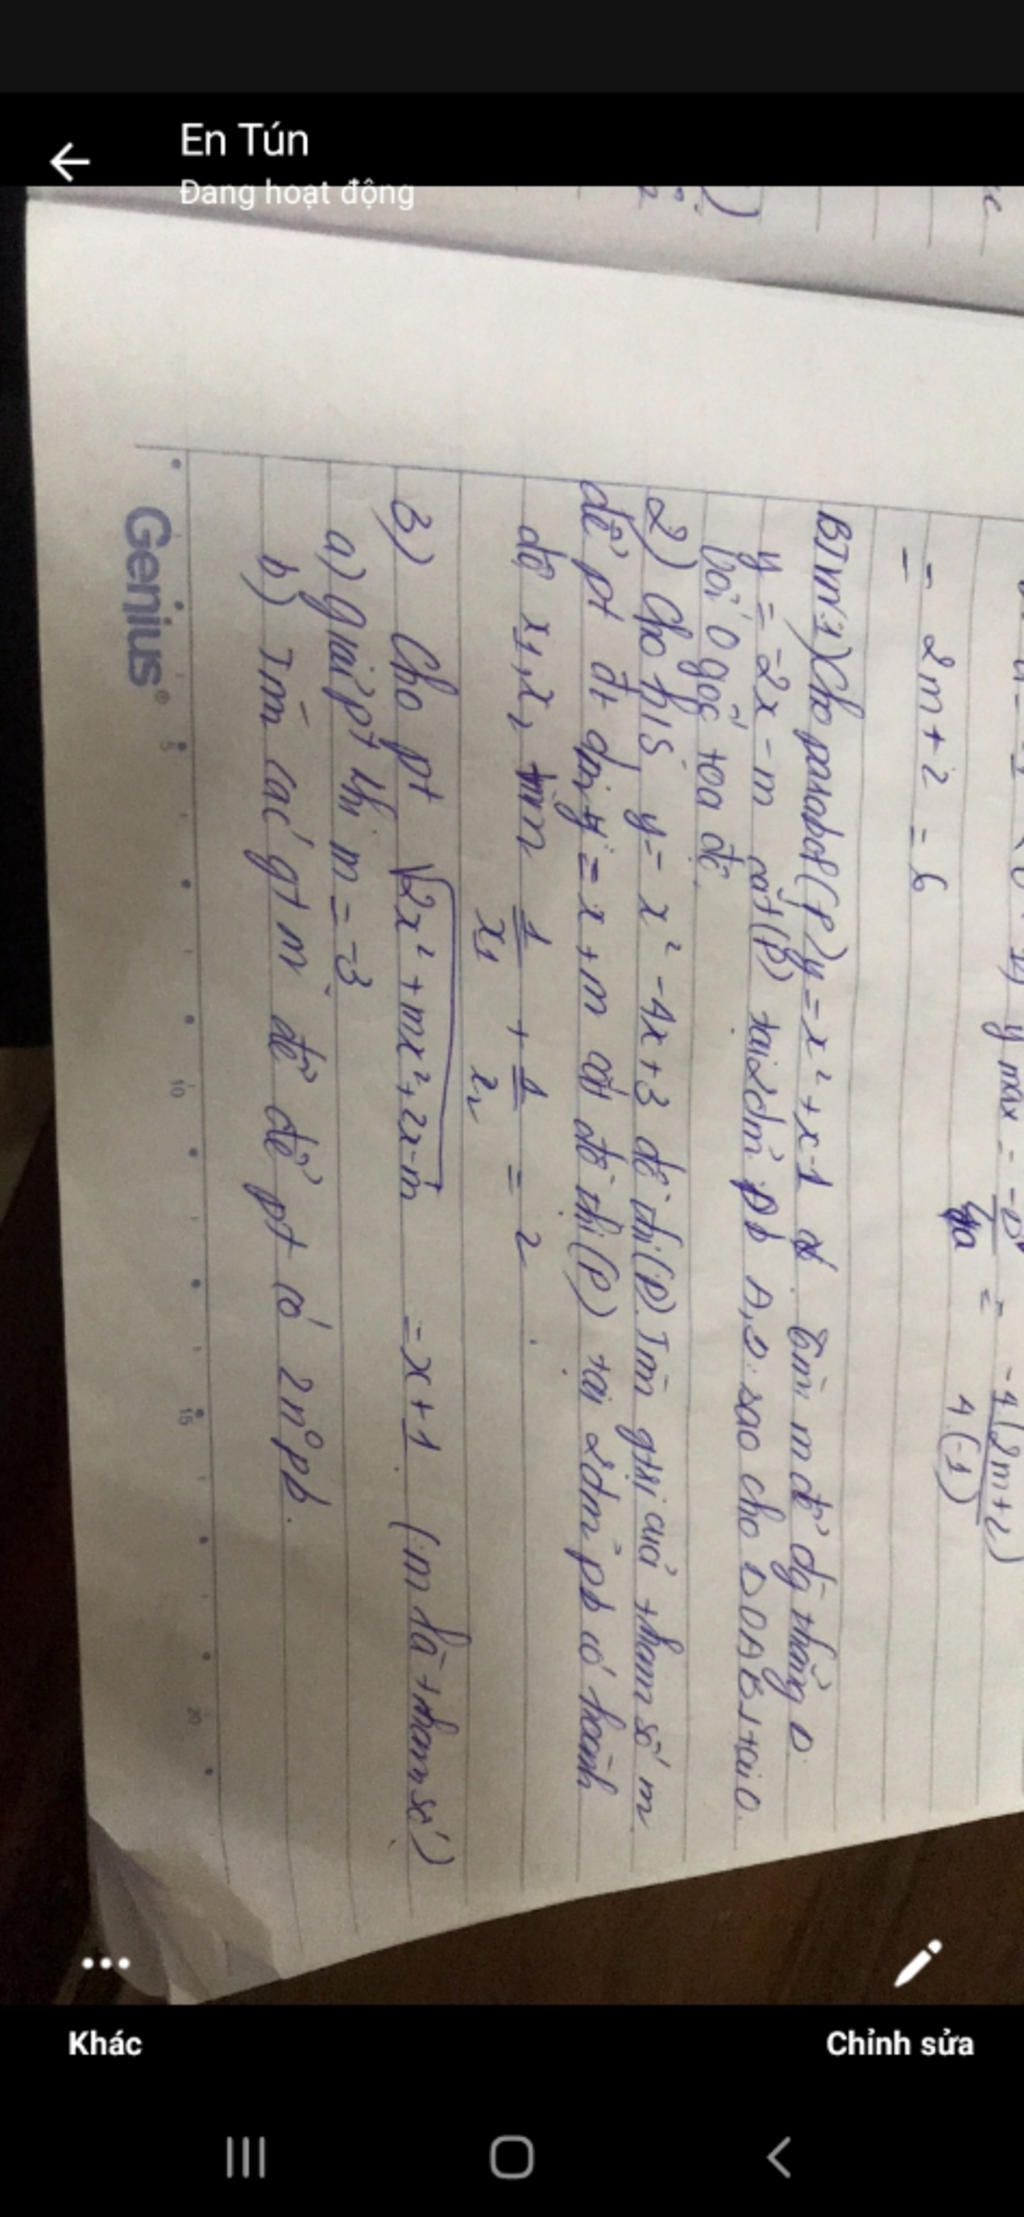 En Tún
Đang hoạt động
y max = -Δ / 4a = -4(2m+2) / 4.(-1)
= 2m + 2 = 6
BTVN: 1) Cho parabol (P) y = x² + x - 1 tìm m để đg thẳng D
y = -2x - m cắt (P) tại 2 đm̉ pb A, B sao cho Δ OAB ⊥ tại O.
với O gốc toạ độ.
2) Cho h/s y = x² - 4x + 3 đồ thị (P). Tìm gtrị của tham số m
để pt đt dm: y = x + m cắt đồ thị (P) tại 2 đm̉ pb có hoành
độ x1, x2 t/mn 1/x1 + 1/x2 = 2.
3) Cho pt √2x² + mx² + 2x - m = x + 1. (m là tham số)
a) giải pt khi m = -3
b) Tìm các gt m để để pt có 2n⁰ pb.
Genius
5
10
15
20
Khác
Chỉnh sửa